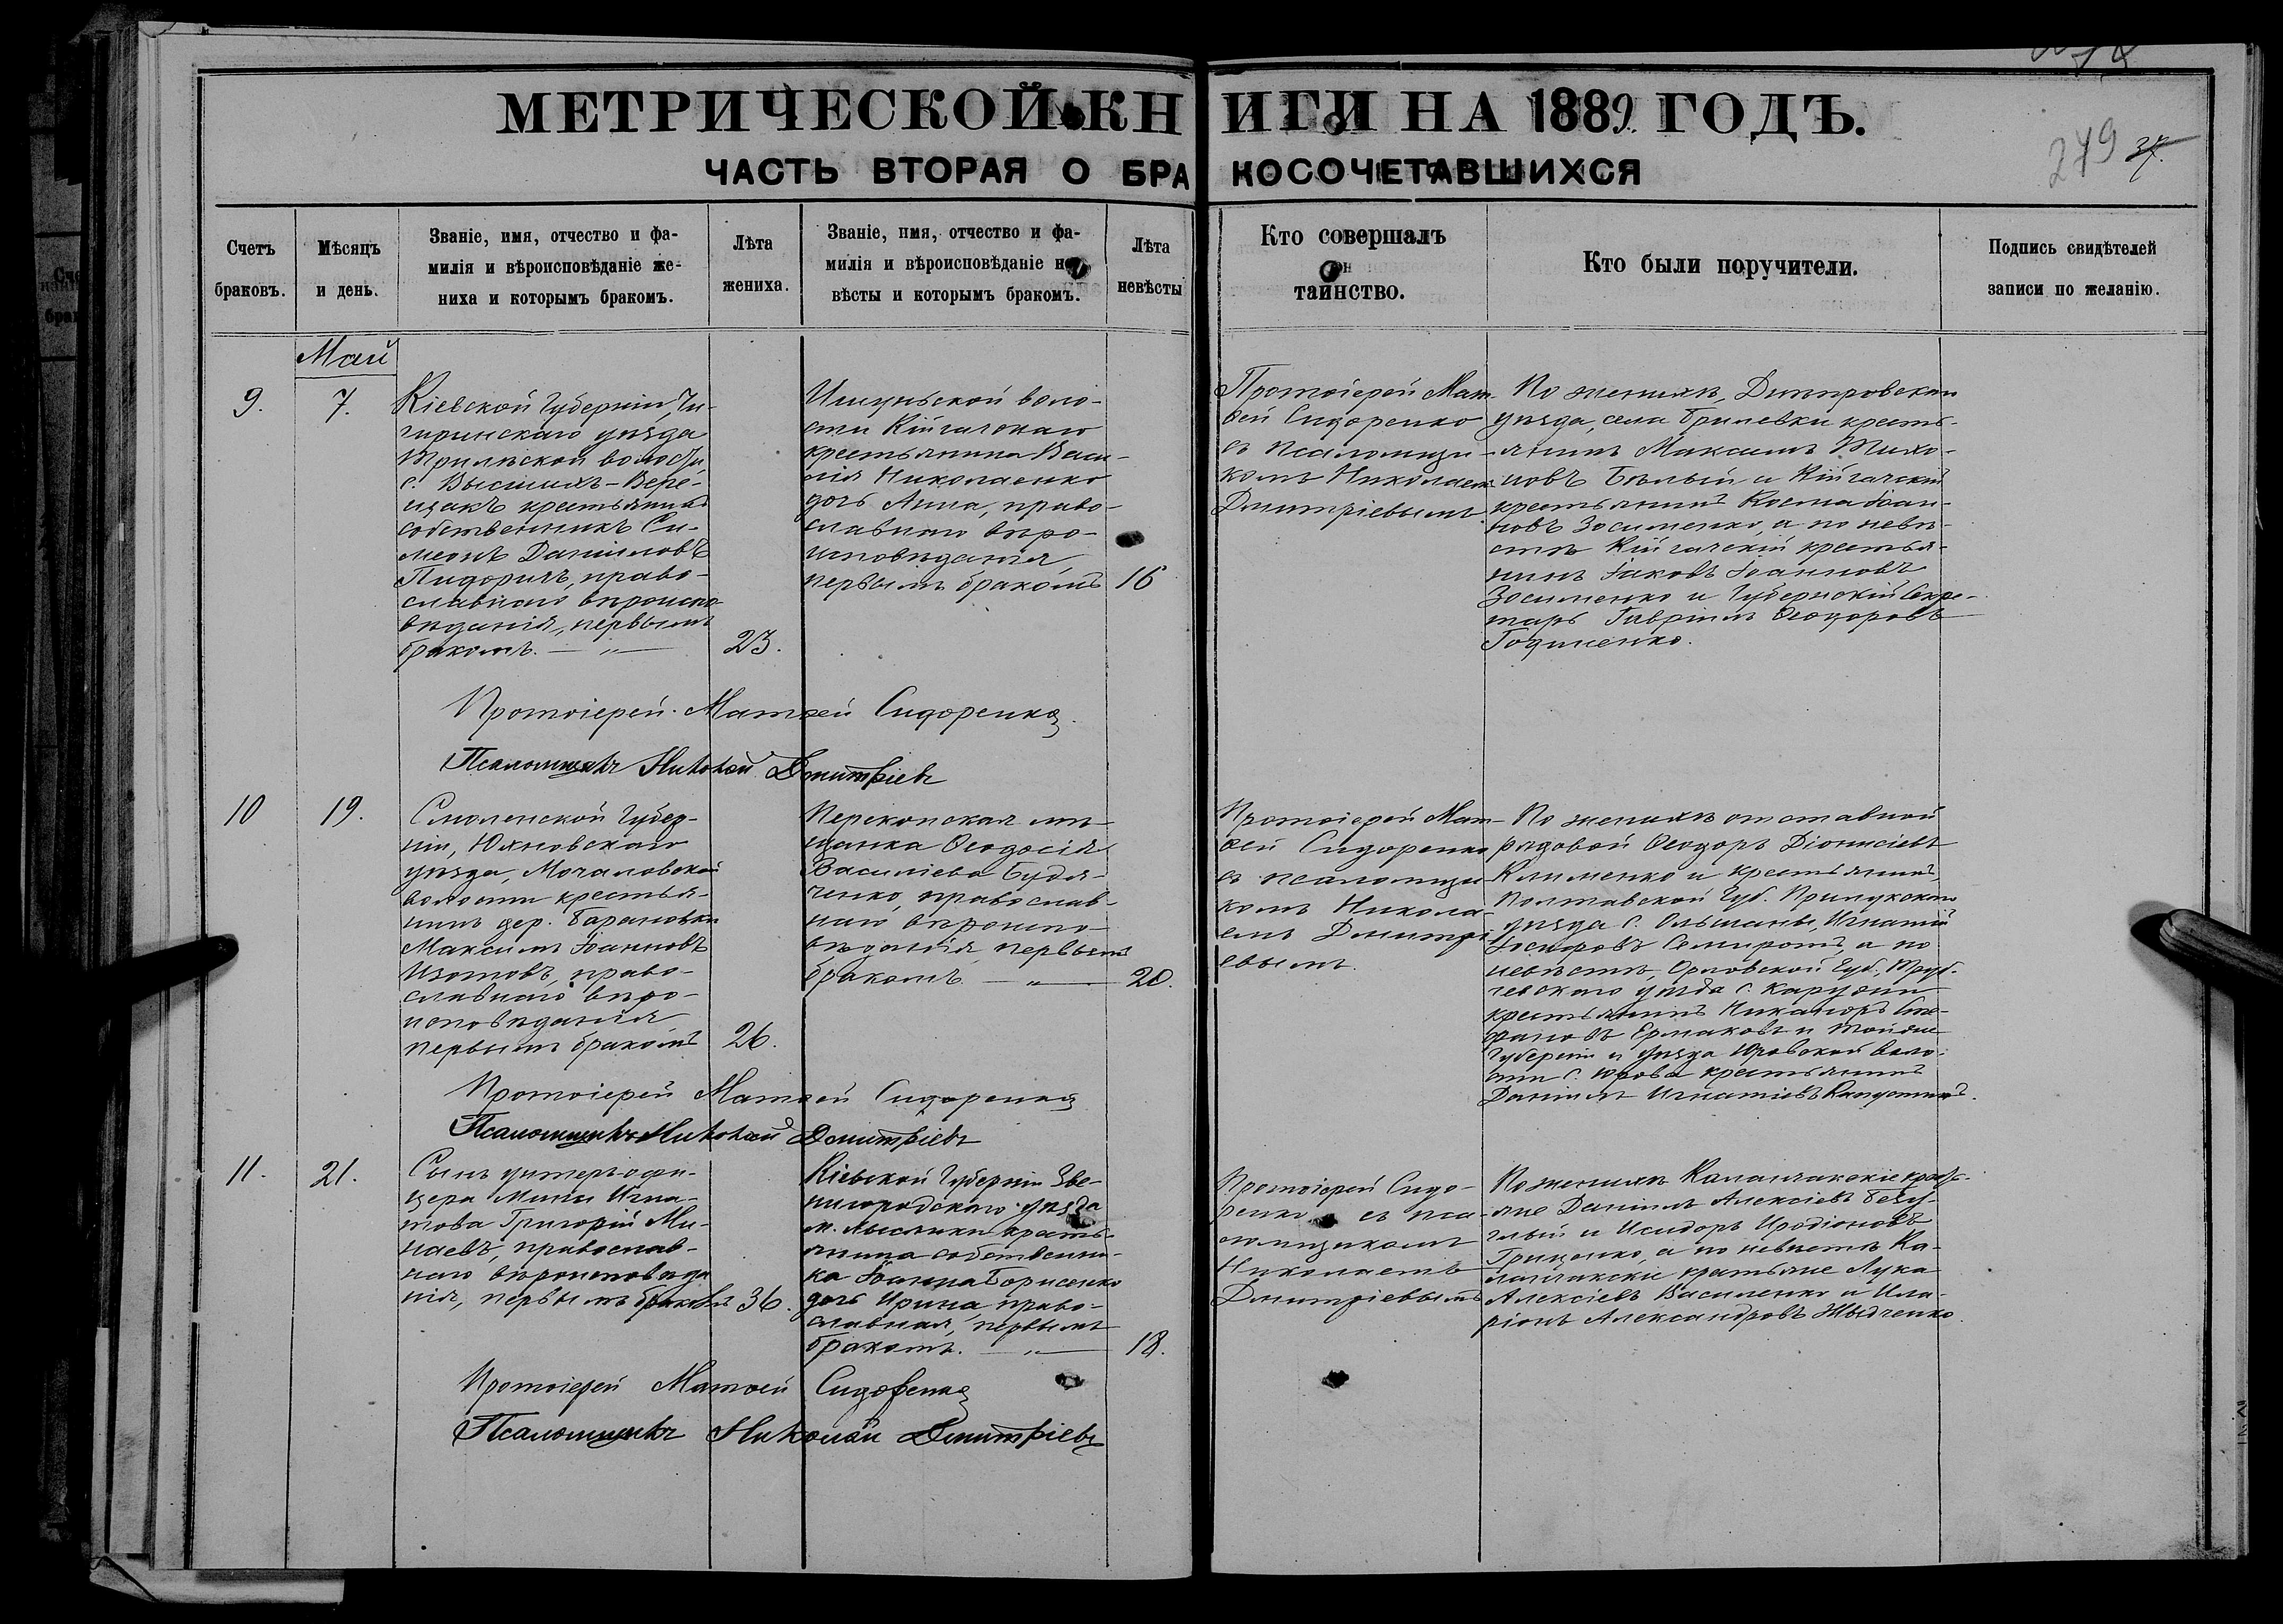 МЕТРИЧЕСКОЙ КНИГИ НА 1889 ГОДЪ.
ЧАСТЬ ВТОРАЯ О БРАКОСОЧЕТАВШИХСЯ
279
37.
Счетъ
браковъ.
Мѣсяцъ
и день.
Званіе, имя, отчество и фа-
милія и вѣроисповѣданіе же-
ниха и которымъ бракомъ.
Лѣта
жениха.
Званіе, имя, отчество и фа-
милія и вѣроисповѣданіе не-
вѣсты и которымъ бракомъ.
Лѣта
невѣсты
Кто совершалъ
таинство.
Кто были поручители.
Подпись свидѣтелей
записи по желанію.
Май
9.
7.
Кіевской Губерніи Чи-
гиринскаго уѣзда
Трилѣской волости,
с. Высшихъ-Вере-
щакъ крестьянинъ
собственникъ Си-
меонъ Даніиловъ
Пидоричъ, право-
славнаго вѣроиспо-
вѣданія, первымъ
бракомъ.
23.
Ишунской воло-
сти Кійгачскаго
крестьянина Васи-
лія Николаенко
дочь Анна, право-
славнаго вѣро-
исповѣданія
первымъ бракомъ
16
Протоіерей Мат-
ѳей Сидоренко
съ псаломщи-
комъ Николаемъ
Дмитріевымъ
По женихѣ, Днѣпровскаго
уѣзда, села Бриневки кресть-
янинъ Максимъ Тихо-
новъ Бѣлый и Кійгачскій
крестьянинъ Косма Іоан-
новъ Зосименко, а по невѣ-
стѣ Кійгачскій крестья-
нинъ Іаковъ Іоанновъ
Зосименко и Губернскій Секре-
тарь Гавріилъ Ѳеодоровъ
Годименко.
Протоіерей Матѳей Сидоренко
Псаломщикъ Николай Дмитріевъ
10
19.
Смоленской Губер-
ніи, Юхновскаго
уѣзда, Мочаловской
волости крестья-
нинъ дер. Барановки
Максимъ Іоанновъ
Изотовъ, право-
славнаго вѣро-
исповѣданія
первымъ бракомъ
26.
Перекопская мѣ-
щанка Ѳеодосія
Васильева Будя-
ченко, православ-
наго вѣроиспо-
вѣданія, первымъ
бракомъ.
20.
Протоіерей Мат-
ѳей Сидоренко
съ псаломщи
комъ Никола-
емъ Дмитрі
евымъ.
По женихѣ отставной
рядовой Ѳеодоръ Діонисіевъ
Клименко и крестьянинъ
Полтавской Губ. Прилукскаго
уѣзда с. Ольшаны, Игнатій
а по
невѣстѣ, Орловской Губ., Труб-
чевскаго уѣзда с.
крестьянинъ Никаноръ Сте-
фановъ Ермаковъ и той же
Губерніи и уѣзда Юровской воло-
сти с. Юрова крестьянинъ
Даніилъ Игнатіевъ
Протоіерей Матѳей Сидоренко
Псаломщикъ Николай Дмитріевъ
11.
21.
Сынъ унтеръ-офи-
цера Мины Игна-
това Григорій Ми-
наевъ, православ-
наго вѣроисповѣда
нія, первымъ бракомъ
36.
Кіевской Губерніи Зве-
нигородскаго уѣзда
м. Лысянки кресть-
янина собственни-
ка Іоанна Борисенко
дочь Ирина, право-
славная, первымъ
бракомъ.
18.
Протоіерей Сидо-
ренко съ пса-
ломщикомъ
Николаемъ
Дмитріевымъ
По женихѣ Каланчакскіе кресть-
яне Даніилъ Алексіевъ Безу-
глый и Исидоръ Иродіоновъ
Гриценко, а по невѣстѣ Ка-
ланчакскіе крестьяне Лука
Алексіевъ Василенко и Ила-
ріонъ Александровъ
Протоіерей Матѳей Сидоренко
Псаломщикъ Николай Дмитріевъ